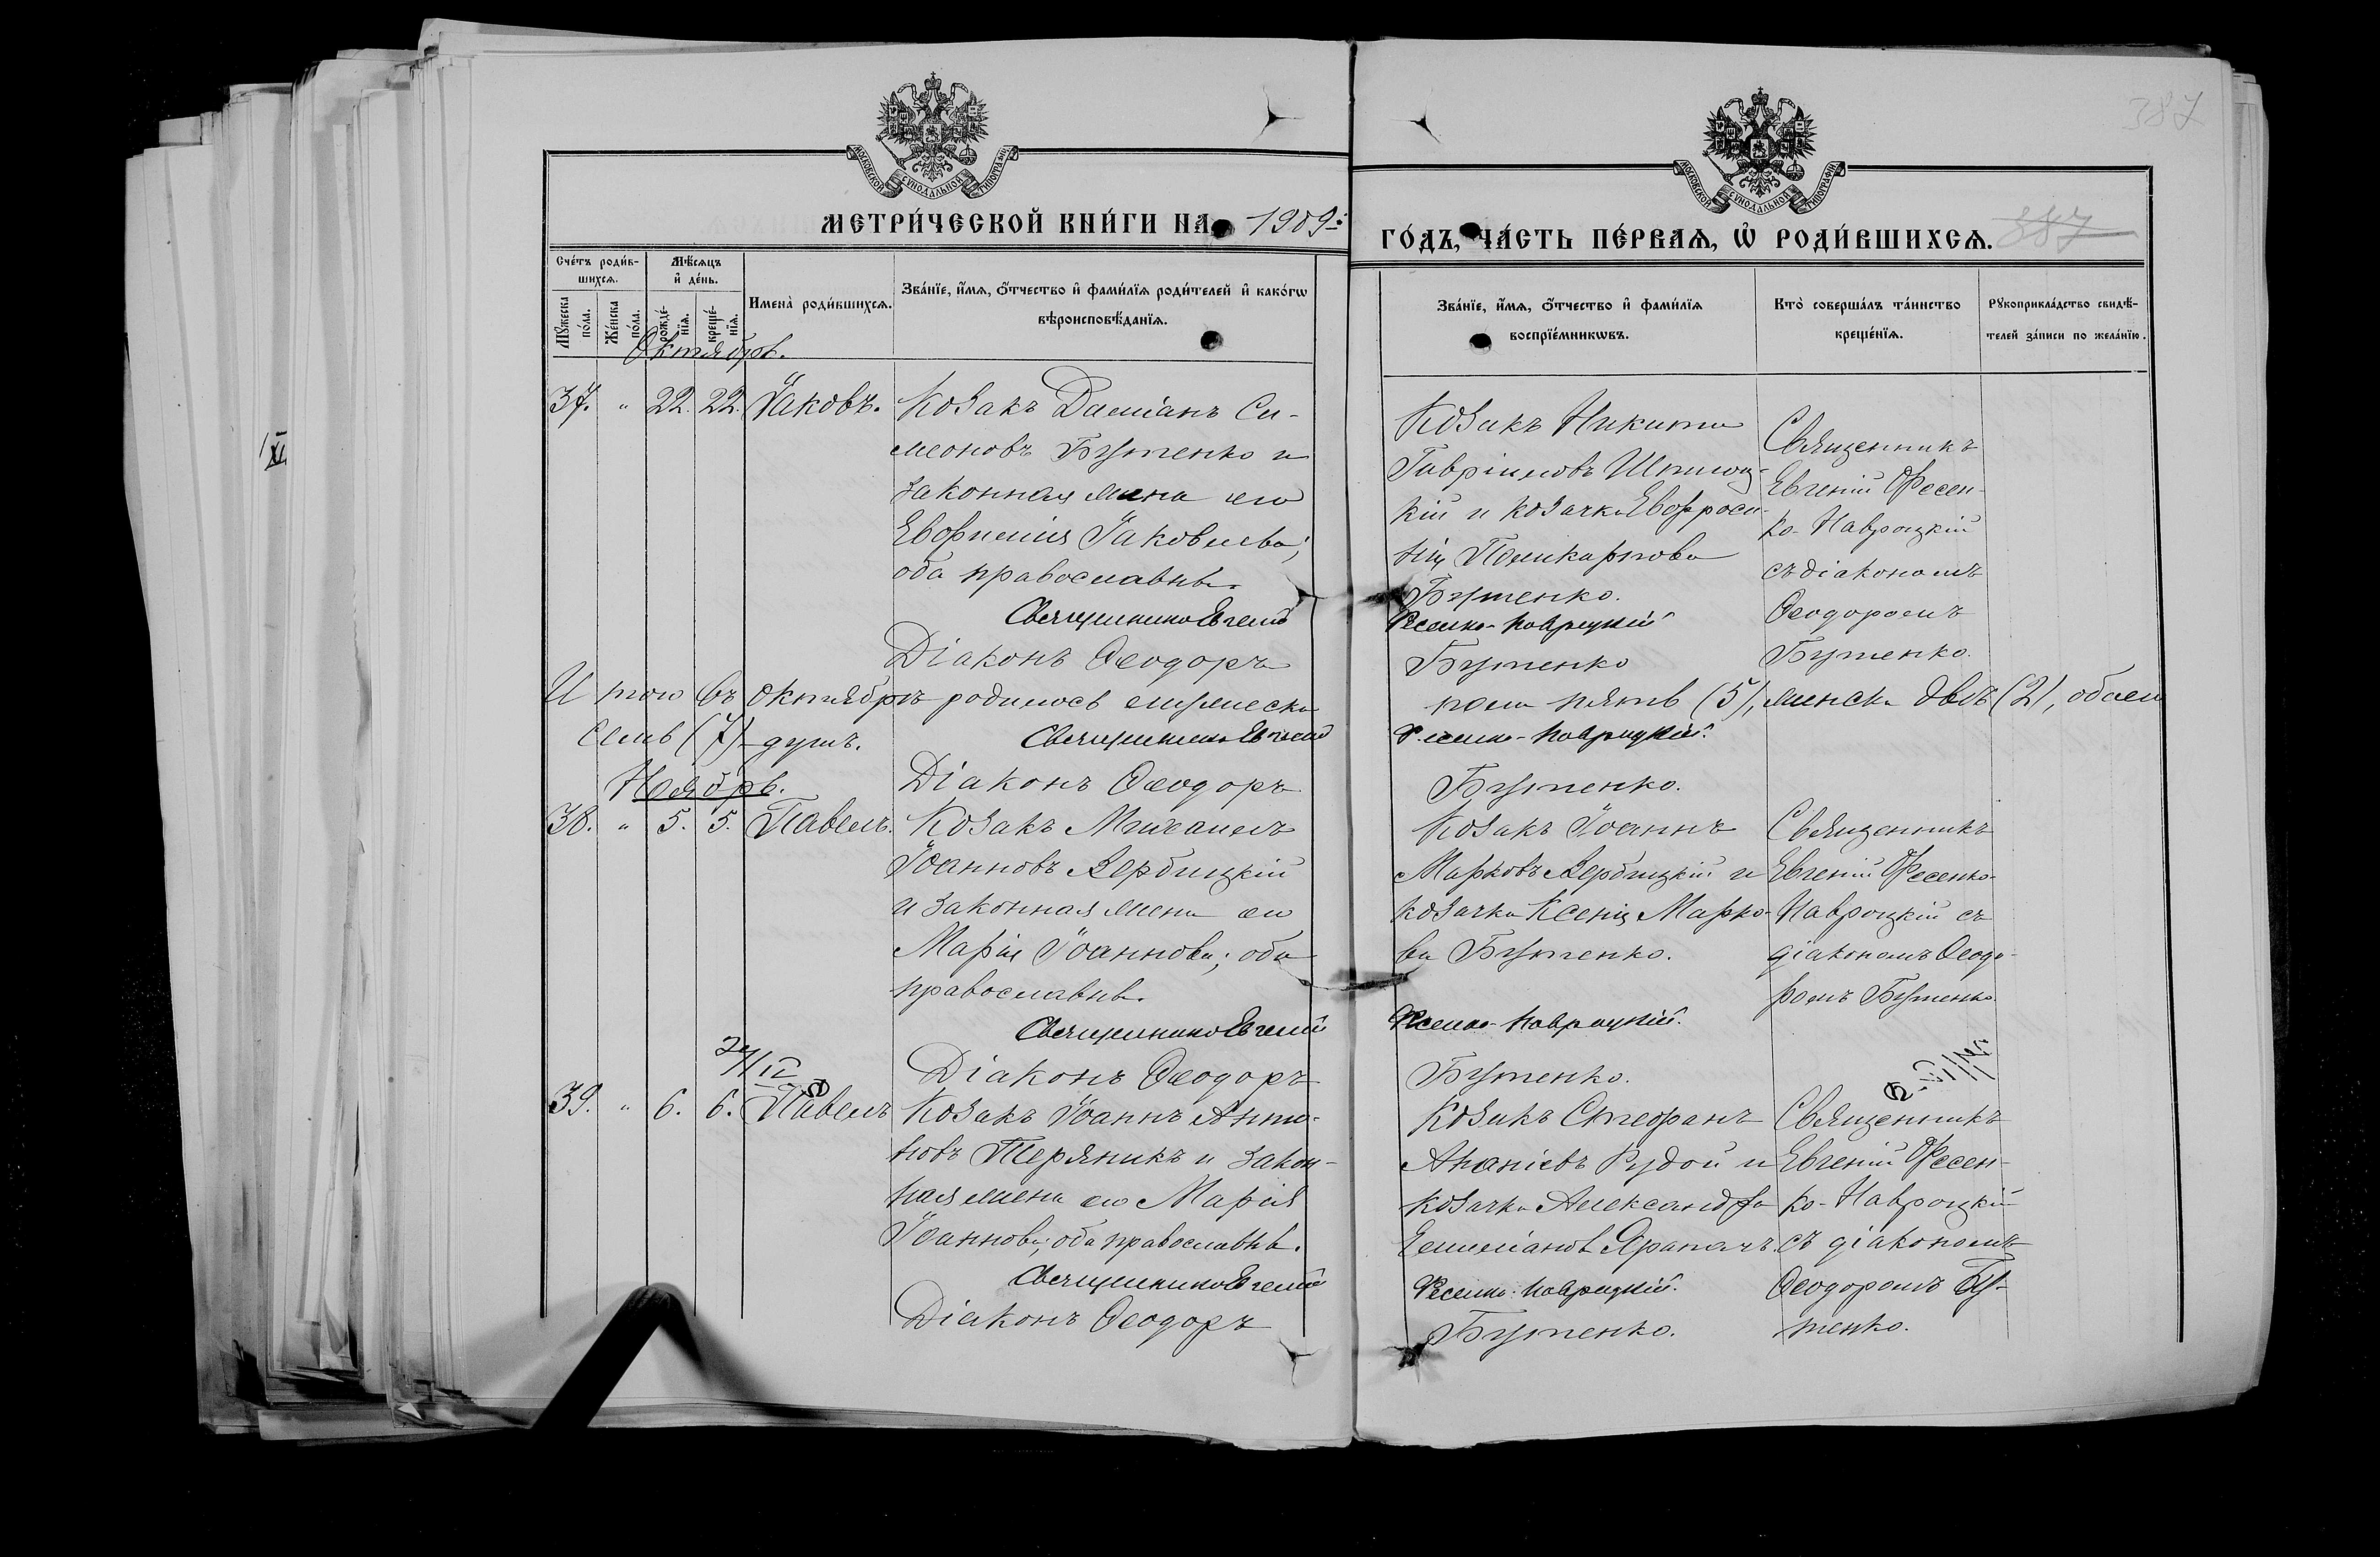 387
МОСКОВСКОЙ СѴНОДАЛЬНОЙ ТИПОГРАФІИ
МОСКОВСКОЙ СѴНОДАЛЬНОЙ ТИПОГРАФІИ
МЕТРИ́ЧЕСКОЙ КНИ́ГИ НА 1909
ГО́ДЪ, ЧА́СТЬ ПЕ́РВАЯ, Ѡ РОДИ́ВШИХСѦ. 387
Сче́тъ роди́в-
шихсѧ.
Мꙋ́жеска по́ла.
Же́нска по́ла.
Мѣ́сѧцъ
и҆ де́нь.
рожде́-
нїѧ.
креще́-
нїѧ.
Имена̀ роди́вшихсѧ.
Зва́нїе, и҆́мѧ, ѻ҆́тчество и҆ фами́лїѧ роди́телей и҆ како́гѡ
вѣроисповѣ́данїѧ.
Зва́нїе, и҆́мѧ, ѻ҆́тчество и҆ фами́лїѧ
воспрїе́мникѡвъ.
Кто̀ соверша́лъ та́инство
креще́нїѧ.
Рꙋкоприкла́дство свидѣ́-
телей за́писи по жела́нїю.
Октябрь.
37. " 22. 22. Іаковъ.
Козакъ Даміанъ Си-
меоновъ Бутенко и
законная жена его
Евфимія Іаковлева;
оба православны.
Священникъ Евгеній
Діаконъ Ѳеодоръ
Козакъ Никита
Гавріиловъ
кій и козачка Евфроси-
нія Поликарпова
Бутенко.
Фесенко-Навроцкій
Бутенко
Священникъ
Евгеній Фесен-
ко-Навроцкій
съ діакономъ
Ѳеодоромъ
Бутенко.
Итого въ октябрѣ родилось мужеска
пола пять (5), женска двѣ (2), обоего
семь (7) душъ.
Священникъ Евгеній
Фесенко-Навроцкій.
Діаконъ Ѳеодоръ
Бутенко.
Ноябрь.
38. " 5. 5. Павелъ.
Козакъ Михаилъ
Іоанновъ Вербицкій
и законная жена его
Марія Іоаннова; оба
православны.
Священникъ Евгеній
Діаконъ Ѳеодоръ
Козакъ Іоаннъ
Марковъ Вербицкій и
козачка Ксенія Марко-
ва Бутенко.
Фесенко-Навроцкій.
Бутенко.
Священникъ
Евгеній Фесенко-
Навроцкій съ
діакономъ Ѳеодо-
ромъ Бутенко.
39. " 6. 6. Павелъ
Козакъ Іоаннъ Анто-
новъ Теряникъ и закон-
ная жена его Марія
Іоаннова; оба православны.
Священникъ Евгеній
Діаконъ Ѳеодоръ
Козакъ Стефанъ
Ананіевъ Рудой и
козачка Александра
Фесенко-Навроцкій.
Бутенко.
Священникъ
Евгеній Фесен-
ко-Навроцкій
съ діакономъ
Ѳеодоромъ Бу-
тенко.
XI